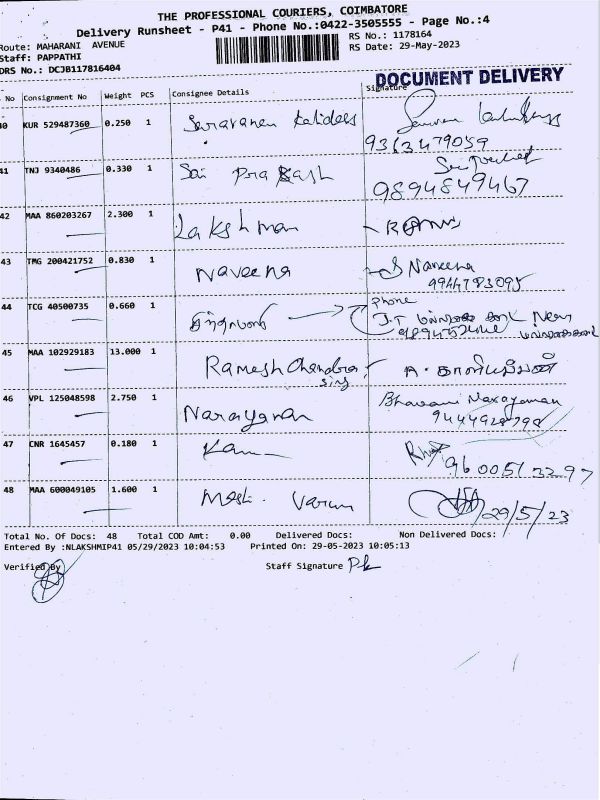 THE PROFESSIONAL COURIERS, COIMBATORE
Delivery Runsheet - P41 - Phone No.:0422-3505555 - Page No.:4
Route: MAHARANI AVENUE
RS No.: 1178164
Staff: PAPPATHI
RS Date: 29-May-2023
DRS No.: DCJB117816404
DOCUMENT DELIVERY
No Consignment No Weight PCS Consignee Details Signature
40 KUR 529487360 0.250 1 Saravanan Kalidass
9363479059
41 TNJ 9340486 0.330 1 Sai Prakash
9894849467
42 MAA 860203267 2.300 1 Lakshman
43 TMG 200421752 0.830 1 Naveena S Naveena
9944783095
44 TCG 40500735 0.660 1 phone
Near
45 MAA 102929183 13.000 1 Ramesh Chandra
46 VPL 125048598 2.750 1 Narayanan Bhavani Narayanan
9444928798
47 CNR 1645457 0.180 1
9600513297
48 MAA 600049105 1.600 1 Varun 29/5/23
Total No. Of Docs: 48 Total COD Amt: 0.00 Delivered Docs: Non Delivered Docs:
Entered By :NLAKSHMIP41 05/29/2023 10:04:53 Printed On: 29-05-2023 10:05:13
Verified By Staff Signature